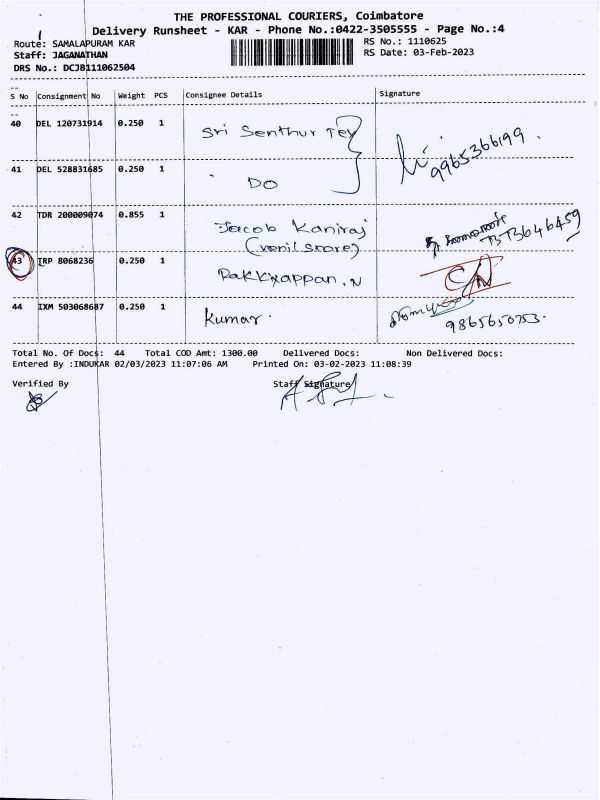 THE PROFESSIONAL COURIERS, Coimbatore
Delivery Runsheet - KAR - Phone No.:0422-3505555 - Page No.:4
Route: SAMALAPURAM KAR
RS No.: 1110625
Staff: JAGANATHAN
RS Date: 03-Feb-2023
DRS No.: DCJB111062504
S No Consignment No Weight PCS Consignee Details Signature
40 DEL 120731914 0.250 1 Sri Senthur Tex
9965366199.
41 DEL 528831685 0.250 1 DO
42 TDR 200009074 0.855 1 Jacob Kaniraj
43 TRP 8068236 0.250 1
44 IXM 503068687 0.250 1 Kumar.
9865650753.
Total No. Of Docs: 44 Total COD Amt: 1300.00 Delivered Docs: Non Delivered Docs:
Entered By :INDUKAR 02/03/2023 11:07:06 AM Printed On: 03-02-2023 11:08:39
Verified By Staff Signature